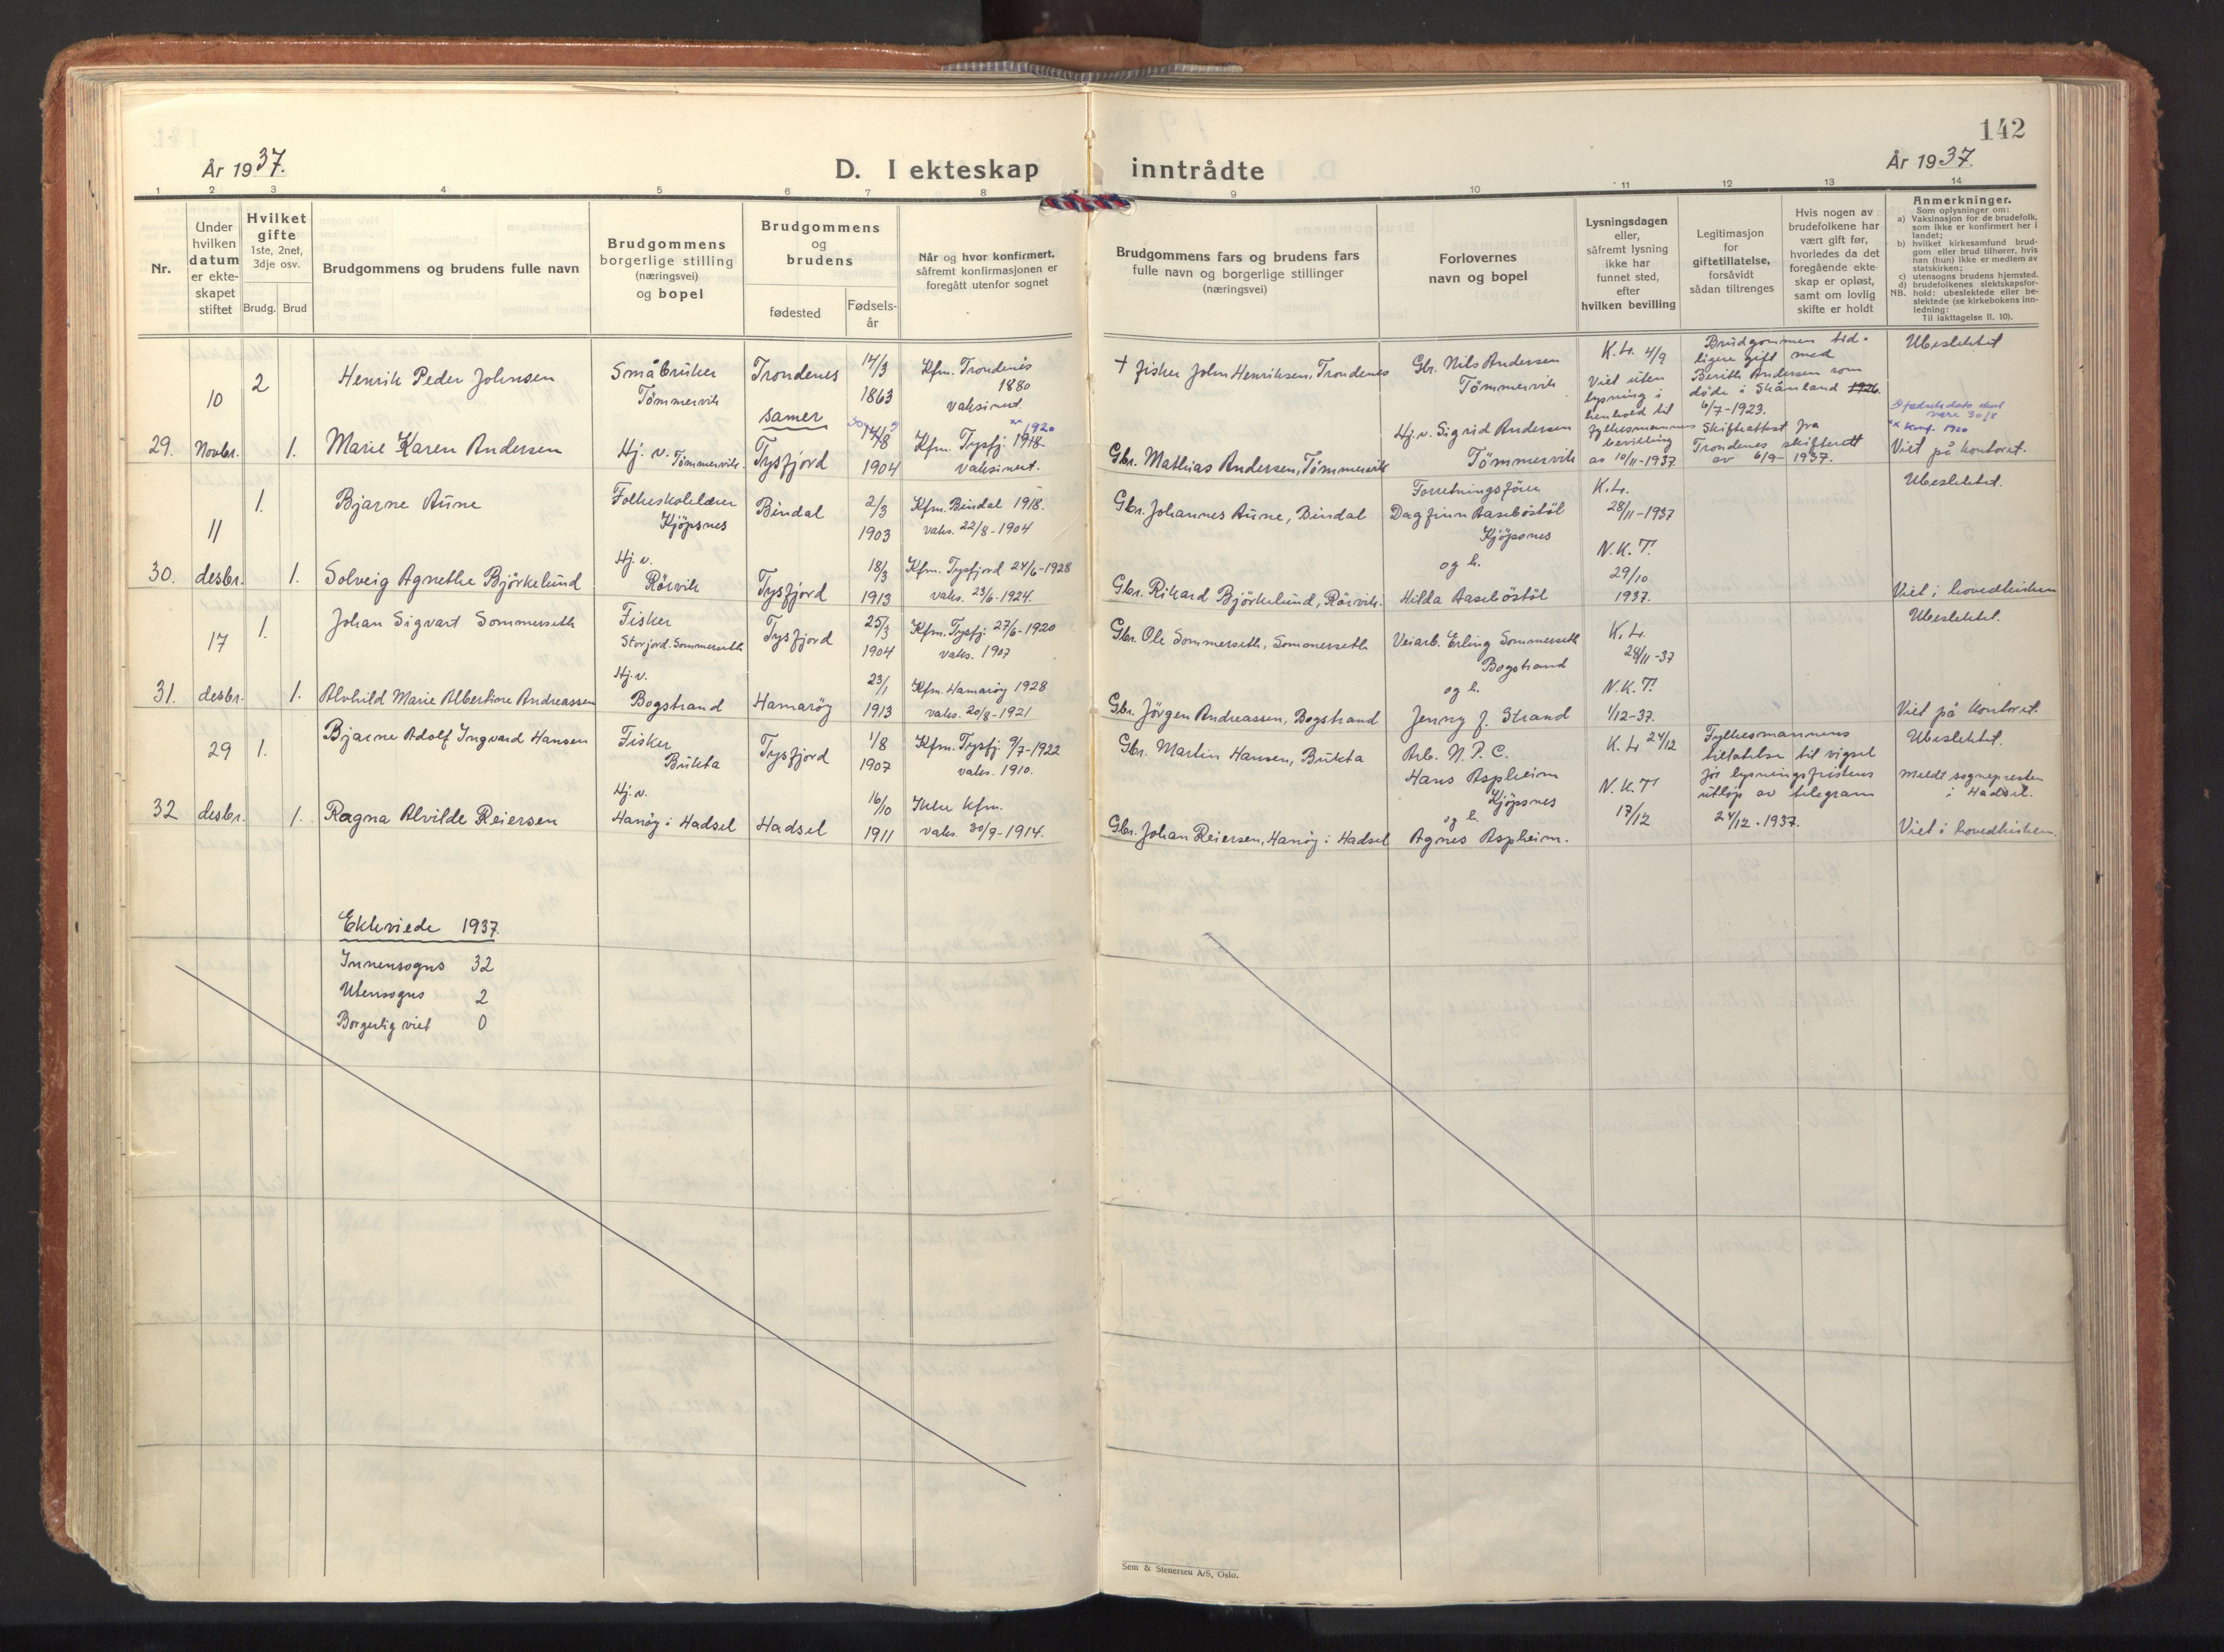 142
År 1937.
D. I ekteskap inntrådte
År 1937.
1 2 3 4 5 6 7 8 9 10 11 12 13 14
Nr.
Under hvilken datum er ekteskapet stiftet
Hvilket gifte 1ste, 2net, 3dje osv.
Brudg. Brud
Brudgommens og brudens fulle navn
Brudgommens borgerlige stilling (næringsvei) og bopel
Brudgommens og brudens
fødested
Fødsels-år
Når og hvor konfirmert, såfremt konfirmasjonen er foregått utenfor sognet
Brudgommens fars og brudens fars fulle navn og borgerlige stillinger (næringsvei)
Forlovernes navn og bopel
Lysningsdagen eller, såfremt lysning ikke har funnet sted, efter hvilken bevilling
Legitimasjon for giftetillatelse, forsåvidt sådan tiltrenges
Hvis nogen av brudefolkene har vært gift før, hvorledes da det foregående ekteskap er opløst, samt om lovlig skifte er holdt
Anmerkninger.
Som oplysninger om:
a) Vaksinasjon for de brudefolk, som ikke er konfirmert her i landet;
b) hvilket kirkesamfund brudgom eller brud tilhører, hvis han (hun) ikke er medlem av statskirken;
c) utensogns brudens hjemsted.
d) brudefolkenes slektskapsforhold: ubeslektede eller beslektede (se kirkebokens innledning:
NB.
Til iakttagelse II. 10).
29.
10 Novbr.
2
1.
Henrik Peder Johnsen
Marie Karen Andersen
Småbruker
Tömmervik
Hj. v. Tömmervik
Trondenes
samer
Tysfjord
14/3
1863
14/8
1904
Kfm. Trondenes
1880
Vaksinert.
xx 1920
Kfm. Tysfj. 1918
Vaksinert.
† Fisker John Henriksen, Trondenes
Gbr. Mathias Andersen, Tömmervik
Gbr. Nils Andersen
Tömmervik
Hj. v. Sigrid Andersen
Tömmervik
K. L. 4/9
Viet uten
lysning i
henhold til
fylkesmannens
bevilling
av 10/11-1937
Brudgommen tid-
ligere gift med
Berith Andersen som
döde i Skånland 1926.
6/7-1923.
Skifteattest fra
Trondenes skifterett
av 6/9-1937.
Ubeslektet
fødselsdato skal
være 30/8
xx Konf. 1920
Viet på kontoret.
30.
11 desbr.
1.
1.
Bjarne Aune
Solveig Agnethe Björkelund
Folkeskolelærer
Kjöpsnes
Hj. v.
Rörvik
Bindal
Tysfjord
2/3
1903
18/3
1913
Kfm. Bindal 1918.
vaks. 22/8-1904
Kfm. Tysfjord 24/6-1928
vaks. 23/6-1924.
Gbr. Johannes Aune, Bindal
Gbr. Rikard Björkelund, Rörvik.
Forretningsförer
Dagfinn Aaseböstöl
Kjöpsnes
og h.
Hilda Aaseböstöl
K. L.
28/11-1937
N. K. T.
29/10
1937.
Ubeslektet.
Viet i hovedkirken
31.
17 desbr.
1.
1.
Johan Sigvart Sommerseth
Alvhild Marie Albertine Andreassen
Fisker
Storjord. Sommerseth
Hj. v.
Bogstrand
Tysfjord
Hamaröy
25/3
1904
23/1
1913
Kfm. Tysfj. 27/6-1920
vaks. 1907
Kfm. Hamaröy 1928
vaks. 20/8-1921
Gbr. Ole Sommerseth, Sommerseth
Gbr. Jörgen Andreassen, Bogstrand
Veiarb. Erling Sommerseth
Bogstrand
og h.
Jenny J. Strand
K. L.
28/11-37
N. K. T.
1/12-37.
Ubeslektet.
Viet på kontoret.
32
29 desbr.
1.
1.
Bjarne Adolf Ingvard Hansen
Ragna Alvilde Reiersen
Fisker
Bukta
Hj. v.
Hanöy i Hadsel
Tysfjord
Hadsel
1/8
1907
16/10
1911
Kfm. Tysfj. 9/7-1922
vaks. 1910.
Ikke kfm.
vaks. 30/9-1914.
Gbr. Martin Hansen, Bukta
Gbr. Johan Reiersen, Hanöy i Hadsel
Arb. N. P. C.
Hans Aspheim
Kjöpsnes
og h.
Agnes Aspheim.
K. L. 24/12
N. K. T
17/12
Fylkesmannens
tillatelse til vigsel
för lysningsfristens
utlöp av telegram
24/12-1937.
Ubeslektet.
Meldt sognepresten
i Hadsel.
Viet i hovedkirken.
Ekteviede 1937.
Innensogns 32
Utensogns 2
Borgerlig viet 0
Sem & Stenersen A/S, Oslo.